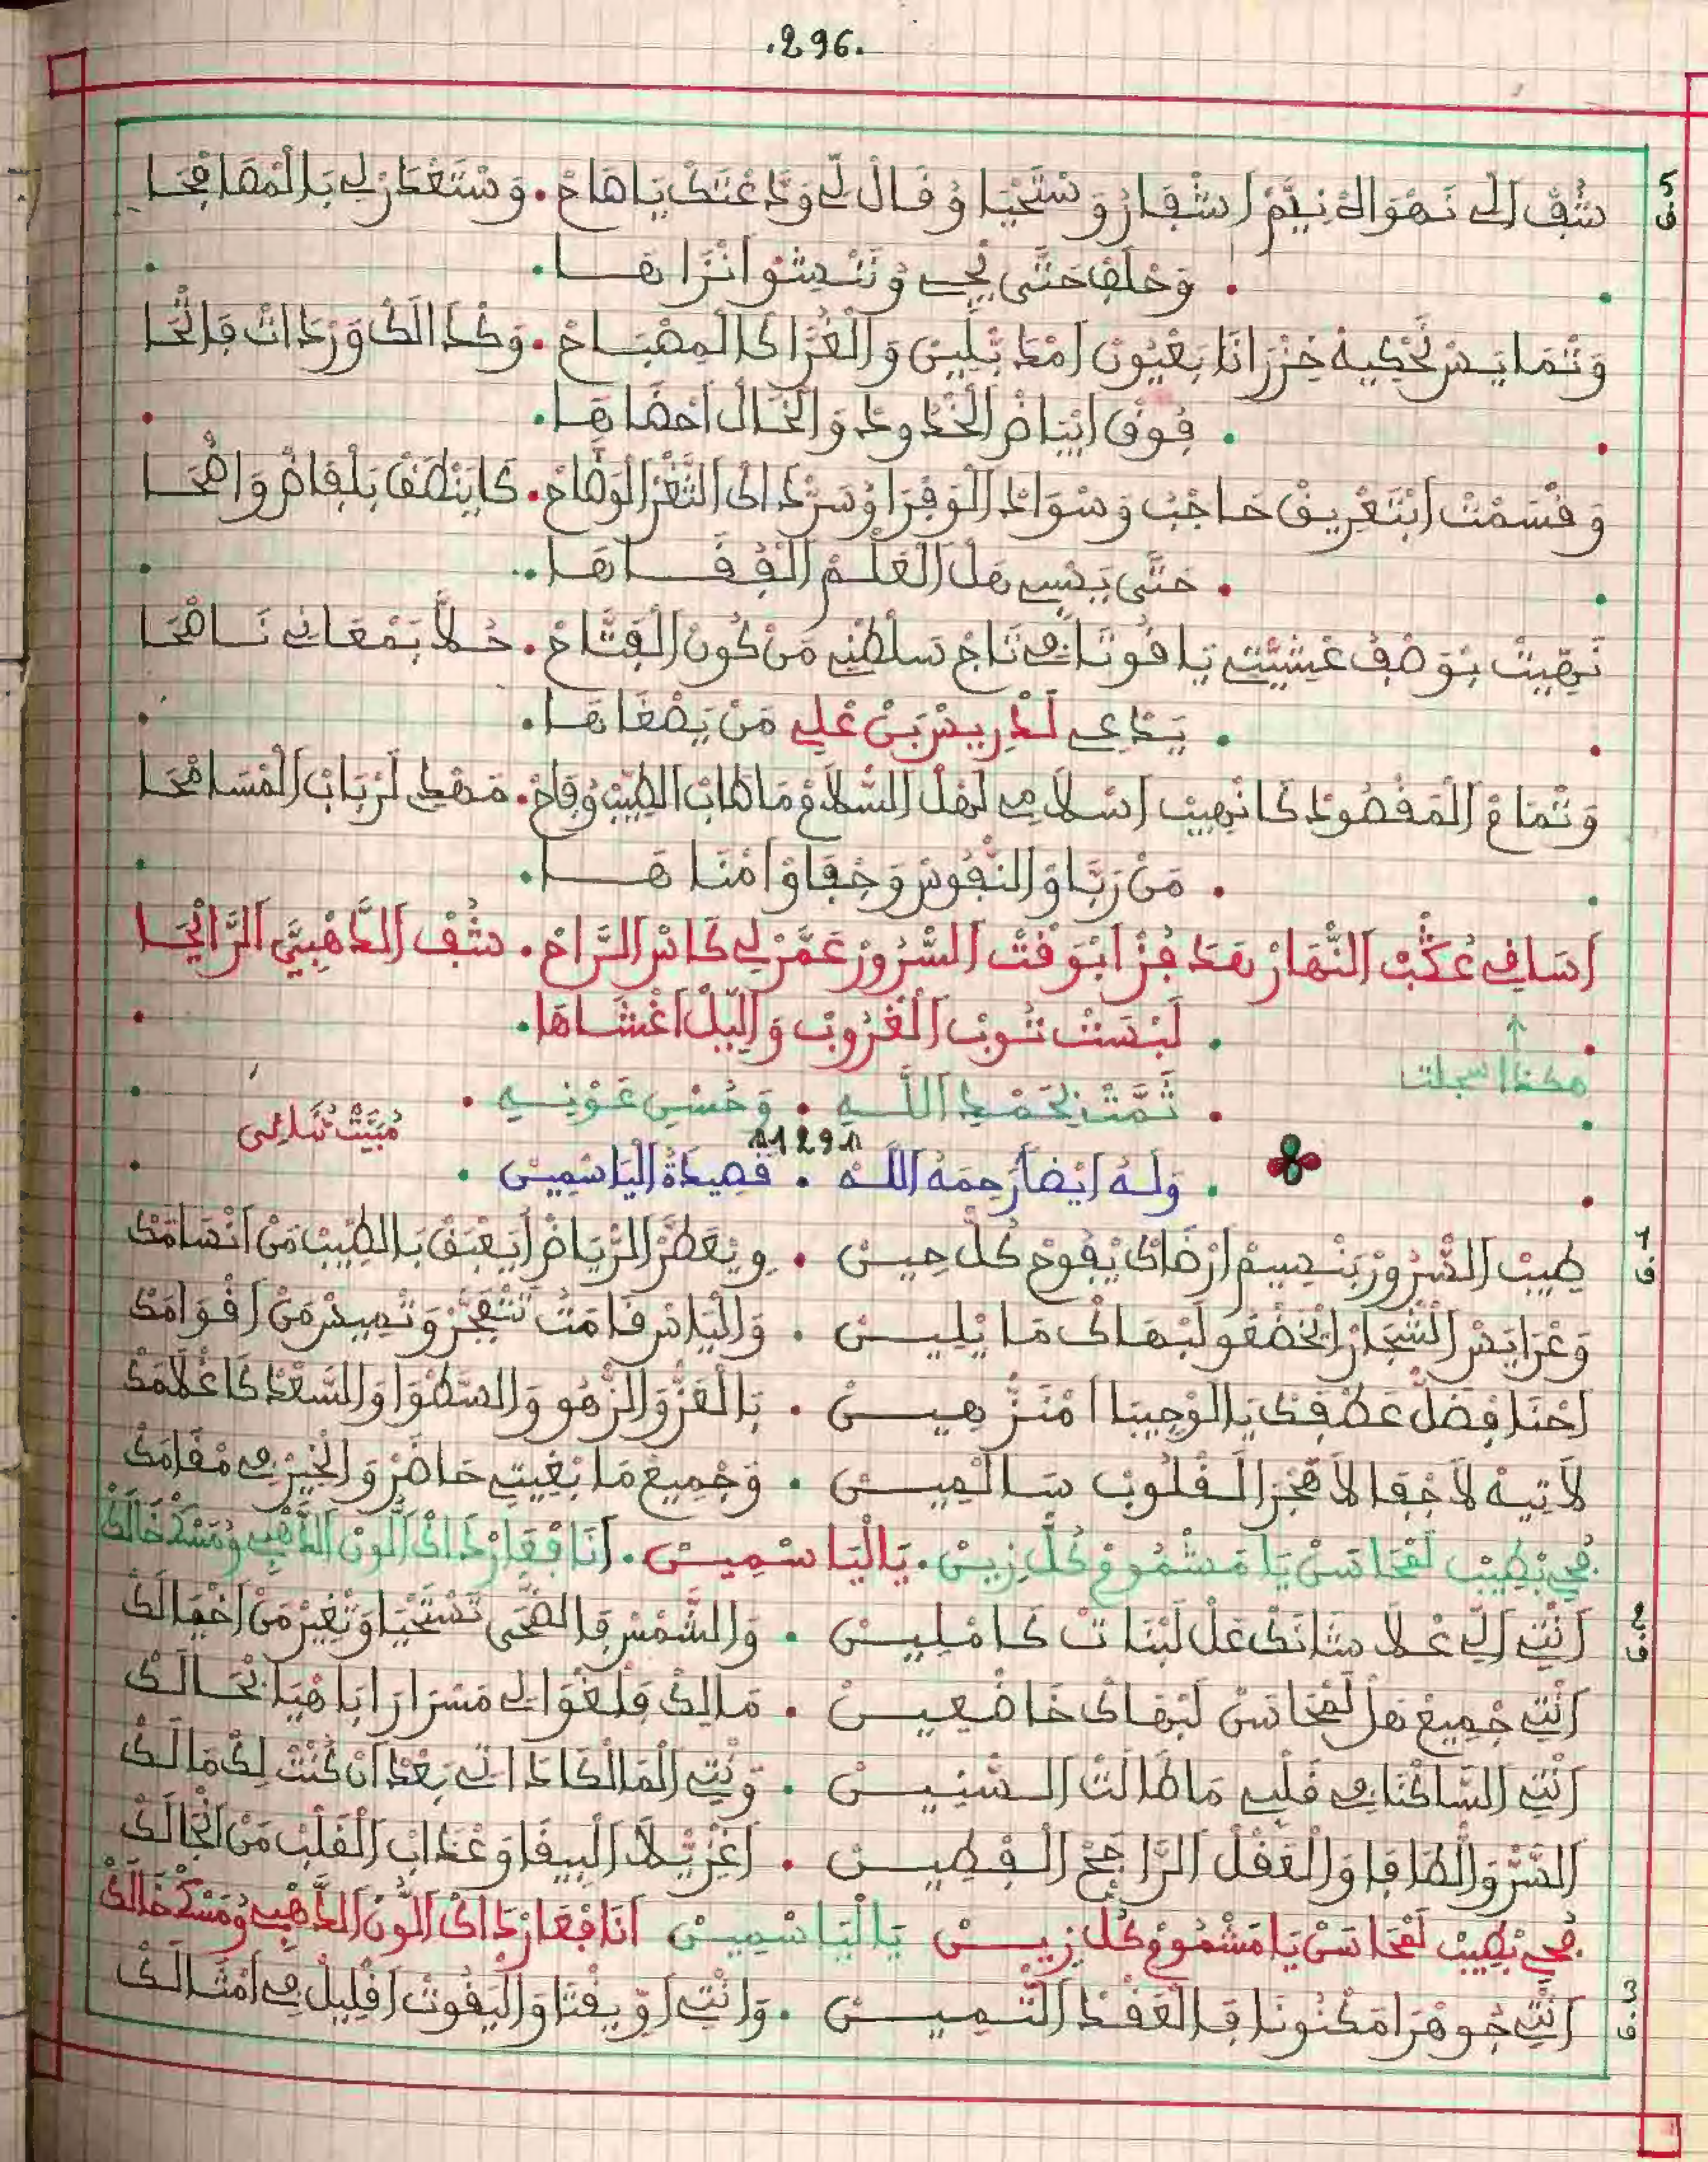 .296.
5 ف
شُفْ اَلِّي نَهْوَاهْ نِيَّمْ اشْفَارُ وَسْتَحْيَا وْ قَالْ لِّي وَدَّاعْتَكْ يَاصَاحْ . وَسْتَعْدَرْ لِي بَالْمْصَافْحَا
وَحْلَفْ حَتَّى يْجِي وْنَنْشُو انْزَاهَا .
وَتْمَايَسْ نَحْكِيهْ خِزْرَانَا بَعْيُونْ وَالْغُرَّا كَالْمِصْبَاحْ . وَكْدَالَكْ وَرْدَاتْ فَاتْحَا
فُوقْ ابْيَاضْ الْخْدُودْ وَالْخَالْ احْضَاهَا .
وَقْسَمْتْ ابْتَعْرِيقْ حَاجْبُ وَسْوَادْ الْوَفْرَا وْسَرْدْ الثَّغْرْ الْوَضَّاحْ . كَايَنْطَقْ بَلْفَاضْ وَاضْحَا
حَتَّى يَنْسِي هَلْ الْعَلْمْ الْفُقَاهَا ..
نَهِّيتْ بْوَصْفْ عْشِيتِي يَاقُوتَا فِي تَاجْ سَلْطْنِي مَنْ كُونْ الْفَتَّاحْ . حُلَّا بَمْعَانِي نَاصْحَا
يَدْعِي لَدْرِيسْ بَنْ عْلِي مَنْ يَصْغَاهَا .
وَتْمَامْ الْمَقْصُودْ كَانْهِيبْ اسْلَامِي لَهْلْ السّْلَامْ مَاطَابْ الطِّيبْ وْفَاحْ . لَرْبَابْ الْمْسَامْحَا
مَنْ رَبَّاوْ النّْفُوسْ وَخْفَاوْ امْنَاهَا .
اسَاقِي عُكْبْ النّْهَارْ بَعْدْ فُزْ ابْوَقْتْ السّْرُورْ عَمَّرْ لِي كَاسْ الرَّاحْ . شُفْ الدَّهْبِيَّ الرَّايْحَا
لَبْسَتْ تُوبْ الْغْرُوبْ وَالِّيلْ اغْشَاهَا .
هكذا سجلت
تَمَّتْ بِحَمْدِ اللَّهِ . وَحُسْنِ عَوْنِهِ .
مْبَيَّتْ ثْنَائِي
1291
وَلَهُ اَيْضاً رَحِمَهُ اللَّه . قَصِيدَةُ الْيَاسَمِين .
1 ف
طِيبْ السّْرُورْ بَنْسِيمْ ارْضَاكْ يْفُوحْ كُلّْ حِينْ . وِيْعَطَّرْ الرِّيَاضْ ايَعْبَقْ بَالطِّيبْ مَنْ انْسَامَكْ
وَعْرَايَسْ الشْجَارْ الْخَضْعُو لَبْهَاكْ مَايْلِينْ . وَالْيَاسْ قَامْتُ تَتْفَجَّرْ وَتْمِيسْ مَنْ اقْوَامَكْ
احْنَا فِضَلّْ عَطْفَكْ يَالْوْجِيبَا امْنَزْهِينْ . بَالْعَزّْ وَالزّْهُو وَالسَّطْوَا وَالسَّعْدْ كَاغْلَامَكْ
لَاتِيهْ لَاجْفَا لَاهْجَرْ الْقْلُوبْ سَالْمِينْ . وَجْمِيعْ مَابْغِيتِ حَاضَرْ وَالْخِيرْ فِي مْقَامَكْ
فُحِي بْطِيبْ لَمْحَاسَنْ يَامَشْمُومْ كُلّْ زِينْ . يَالْيَاسْمِينْ . اَنَا فْعَارْ دَاكْ اللُّونْ الدَّهْبِي وْمَسْكْ خَالَكْ
2 ف
اَنْتِ اَلِّي عْلَا شَانَكْ عَلْ لَبْنَاتْ كَامْلِينْ . وَالشَّمْسْ فَالضّْحَى تَسْتَحْيَا وَتْغِيرْ مَنْ اخْيَالَكْ
اَنْتِ جْمِيعْ هَلْ لَمْحَاسَنْ لَبْهَاكْ خَاضْعِينْ . مَالِكْ فَلْغْوَالِي مَسْرَارَا يَاهْيَا بْحَالَكْ
اَنْتِ السَّاكْنَا فِي قَلْبِي مَاطَالْتْ السّْنِينْ . وَنْتِ الْمَالْكَا دَاتِي بَعْدْ اَنْ كُنْتْ لِكْ مَالَكْ
السَّرّْ وَالطَّافَا وَالْعَقْلْ الرَّاجَحْ الْفْطِينْ . اغْزِيَّلْ الْبِيفَا وَعْدَابْ الْقَلْبْ مَنْ انْجَالَكْ
فُحِي بْطِيبْ لَمْحَاسَنْ يَامَشْمُومْ كُلّْ زِينْ يَالْيَاسْمِينْ اَنَا فْعَارْ دَاكْ اللُّونْ الدَّهْبِي وْمَسْكْ خَالَكْ
3 ف
اَنْتِ جُوهْرَا مَكْنُونَا فَالْعَقْدْ التّْمِينْ . وَانْتِ اوْرِيقْتَا وَالْيَقُوتْ اقْلِيلْ فِي امْثَالَكْ